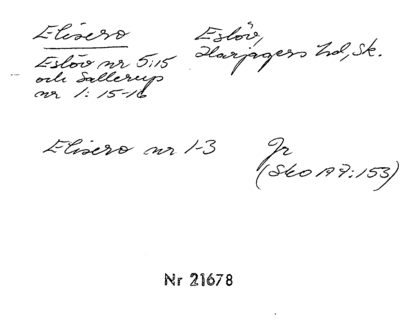 Elisero
Eslöv nr 5:15
och Sallerup
nr 1:15-16
Eslöv,
Harjagers hd, Sk.
Elisero nr 1-3
Jr
(Sko A 7:153)
Nr 21678